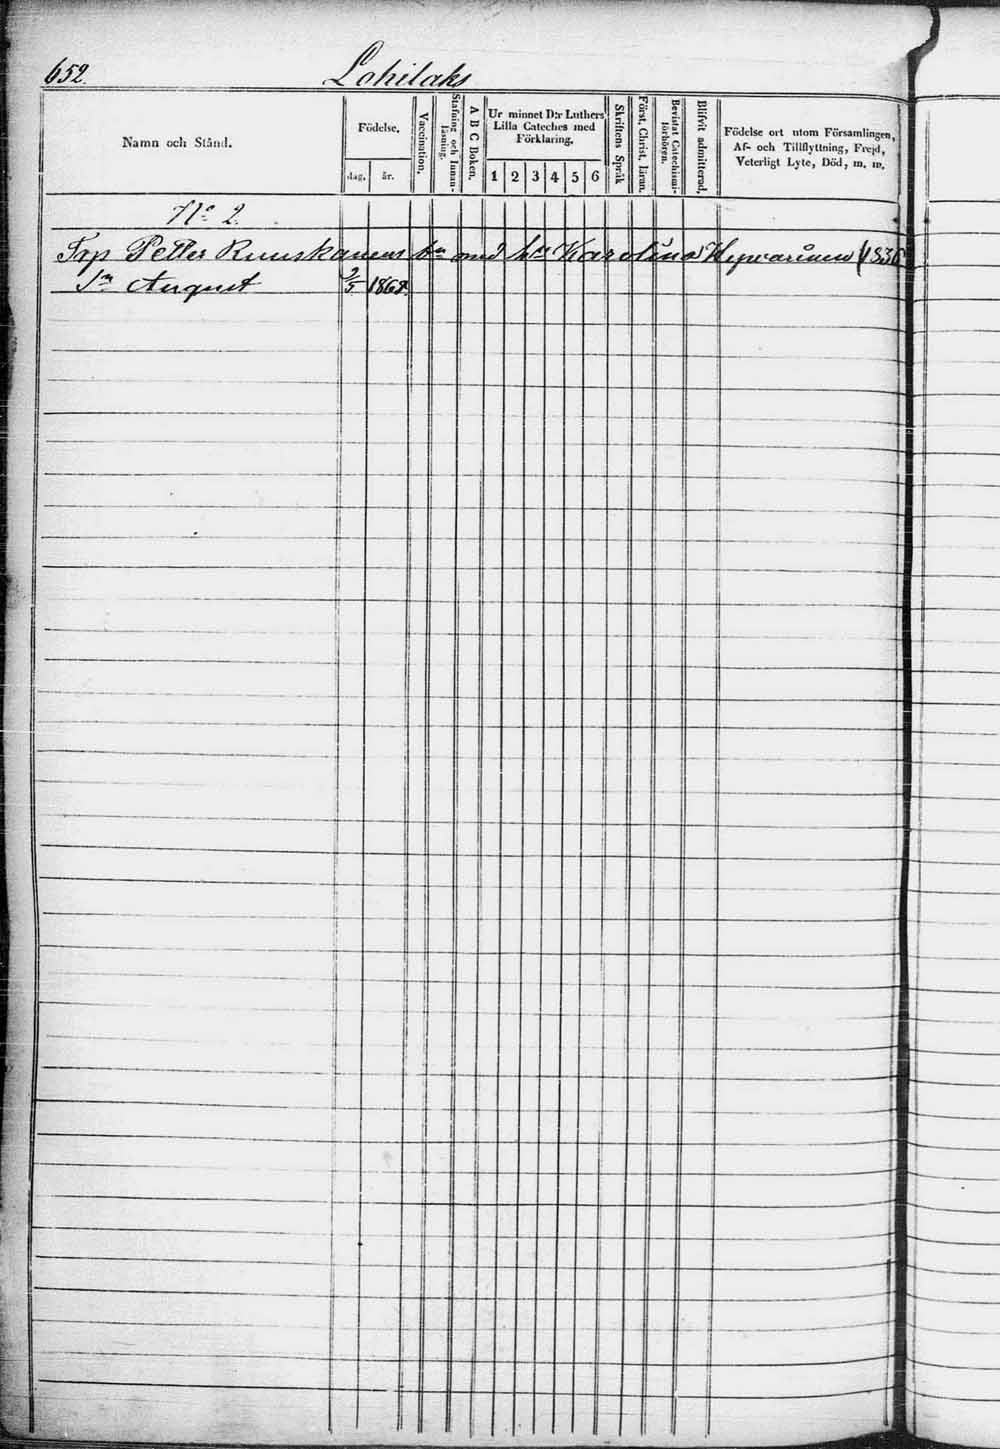 652.
Lohilaks
Namn och Stånd.
Födelse.
dag.
år.
Vaccination.
Stafning och Innan-
läsning.
A B C Boken.
Ur minnet D:r Luthers
Lilla Cateches med
Förklaring.
1 2 3 4 5 6
Skriftens Språk
Först. Christ. läran.
Bevistat Catechismi-
förhören.
Blifvit admitterad.
Födelse ort utom Församlingen,
Af- och Tillflyttning, Frejd,
Veterligt Lyte, Död, m. m.
No 2.
Trp Petter Ruuskanens med h Karolina
Sn August 2/5 1868.